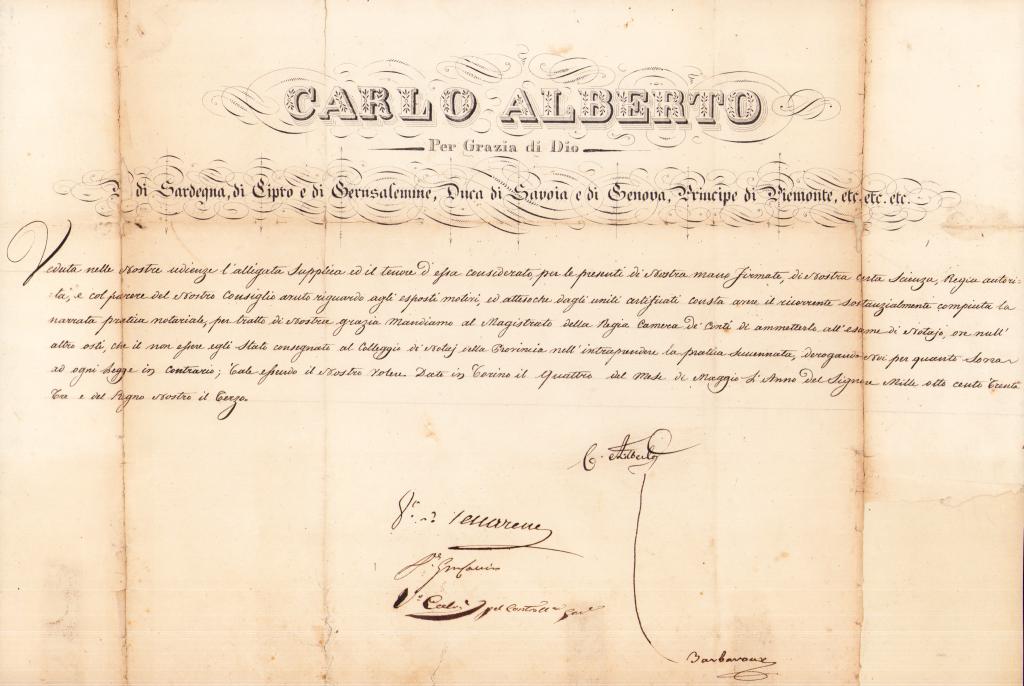 CARLO ALBERTO
Per Grazia di Dio
Re di Sardegna, di Cipro e di Gerusalemme, Duca di Savoia e di Genova, Principe di Piemonte, etc. etc. etc.
Veduta nelle Nostre udienze l'allegata Supplica ed il tenore d'essa considerato, per le presenti di Nostra mano firmate, di Nostra certa Scienza, Regia autori-
tà, e col parere del Nostro Consiglio avuto riguardo agli esposti motivi, ed attesochè dagli uniti certificati consta avere il ricorrente sostanzialmente compiuta la
narrata pratica notariale, per tratto di Nostra grazia Mandiamo al Magistrato della Regia Camera de' Conti di ammetterlo all'esame di Notajo, ove null'
altro osti, che il non essere egli Stato consegnato al Colleggio di Notaj della Provincia nell'intraprendere la pratica suaccennata, derogando Noi per quanto Sovra
ad ogni Legge in contrario; Tale essendo il Nostro volere. Date in Torino il Quattro del Mese di Maggio L'Anno del Signore Mille otto cento Trenta
Tre e del Regno Nostro il Terzo.
C. Alberto
V.
V.
V. pel Controll.e Gen.le
Barbaroux